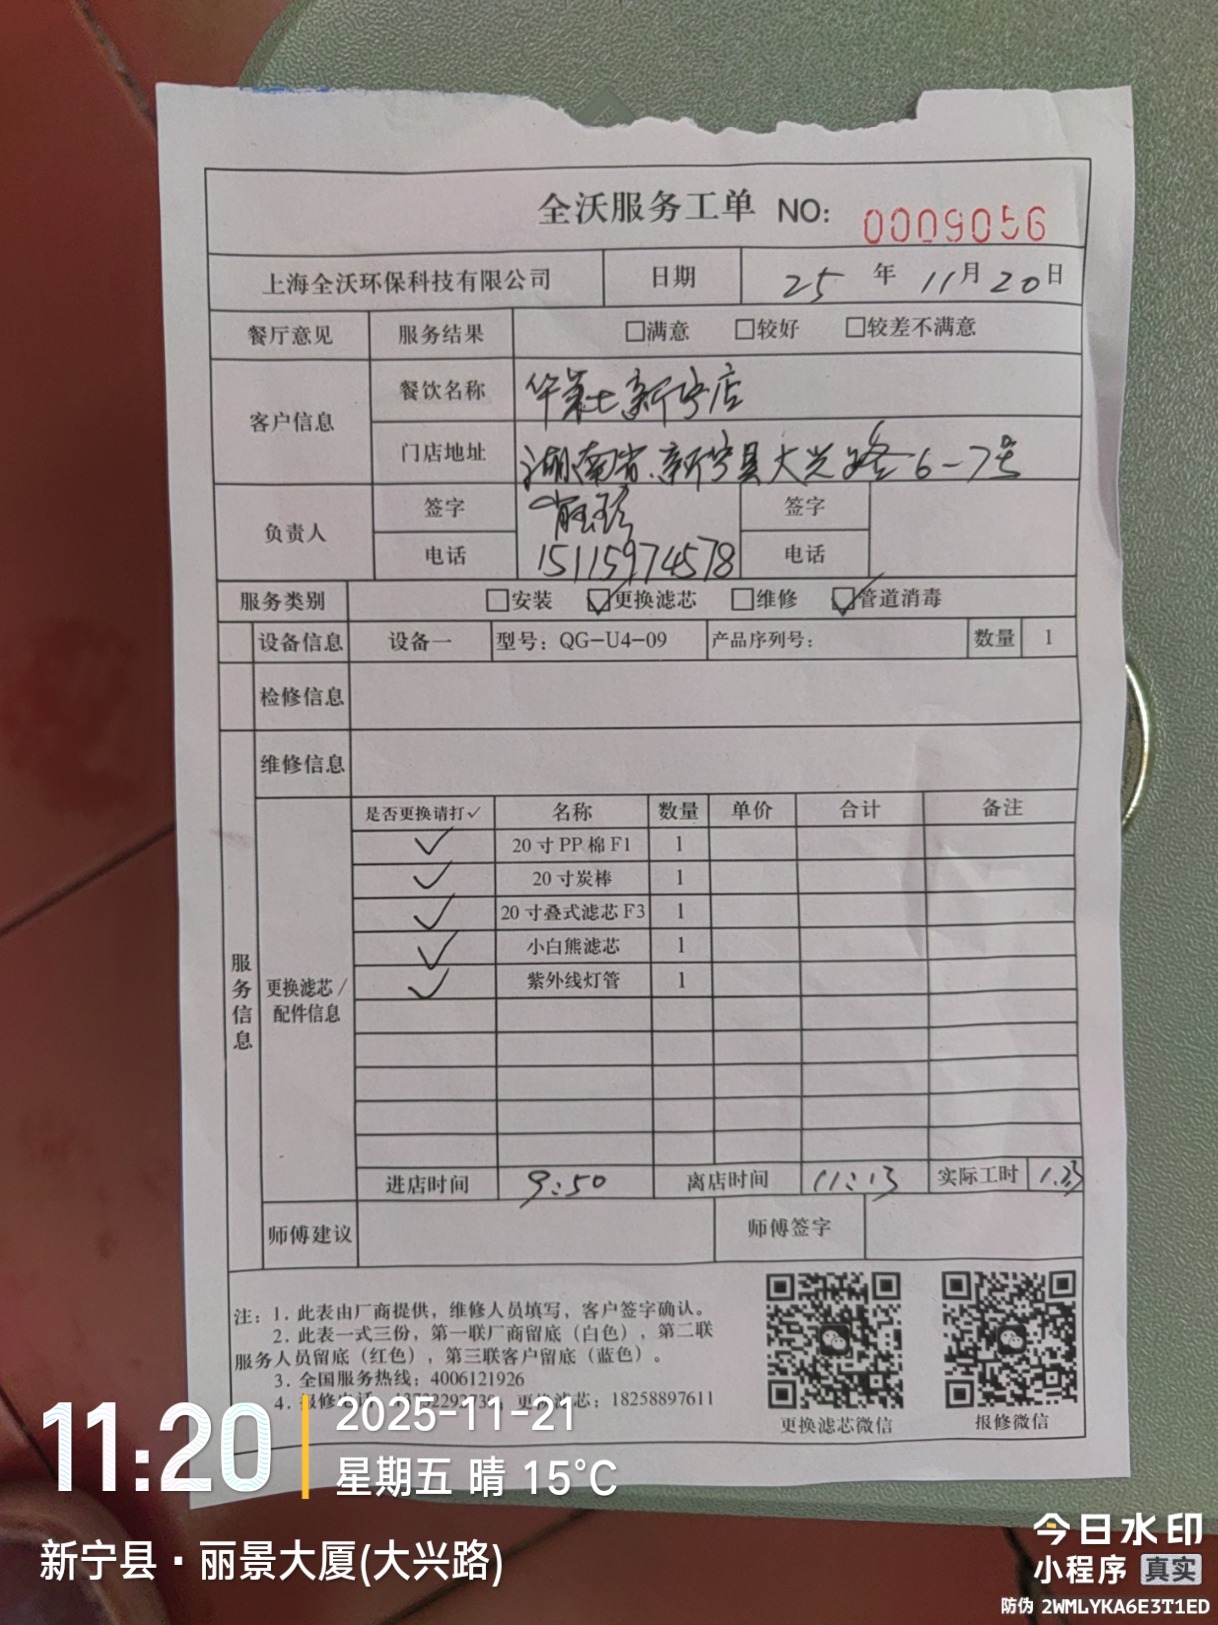 全沃服务工单 NO: 0009056
上海全沃环保科技有限公司 日期 25 年 11 月 20 日
餐厅意见 服务结果 □满意 □较好 □较差不满意
客户信息 餐饮名称 华莱士新宁店
门店地址 湖南省.新宁县大兴路6-7号
负责人 签字 签字
电话 15115974578 电话
服务类别 □安装 ☑更换滤芯 □维修 ☑管道消毒
设备信息 设备一 型号：QG-U4-09 产品序列号： 数量 1
检修信息
维修信息
服务信息
更换滤芯/配件信息
是否更换请打✓ 名称 数量 单价 合计 备注
✓ 20寸PP棉F1 1
✓ 20寸炭棒 1
✓ 20寸叠式滤芯F3 1
✓ 小白熊滤芯 1
✓ 紫外线灯管 1
进店时间 9:50 离店时间 11:13 实际工时 1.23
师傅建议 师傅签字
注：1. 此表由厂商提供，维修人员填写，客户签字确认。
2. 此表一式三份，第一联厂商留底（白色），第二联
服务人员留底（红色），第三联客户留底（蓝色）。
3. 全国服务热线：4006121926
4. 报修电话 更换滤芯：18258897611
更换滤芯微信 报修微信
11:20
2025-11-21
星期五 晴 15°C
新宁县·丽景大厦(大兴路)
今日水印
小程序 真实
防伪 2WMLYKA6E3T1ED